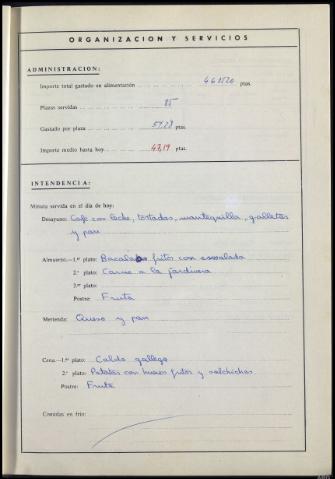 ORGANIZACION Y SERVICIOS
ADMINISTRACION:
Importe total gastado en alimentación ptas.
Plazas servidas 85
Gastado por plaza 54,28 ptas.
Importe medio hasta hoy 47,19 ptas.
INTENDENCIA:
Minuta servida en el día de hoy:
Desayuno: Café con leche, tostadas, mantequilla, galletas
y pan
Almuerzo.—1.er plato: Bacalao fritos con ensalada
2.º plato: Carne a la jardinera
3.er plato:
Postre: Fruta
Merienda: Queso y pan
Cena.—1.er plato: Caldo gallego
2.º plato: Patatas con huevos fritos y salchichas
Postre: Fruta
Comidas en frío: